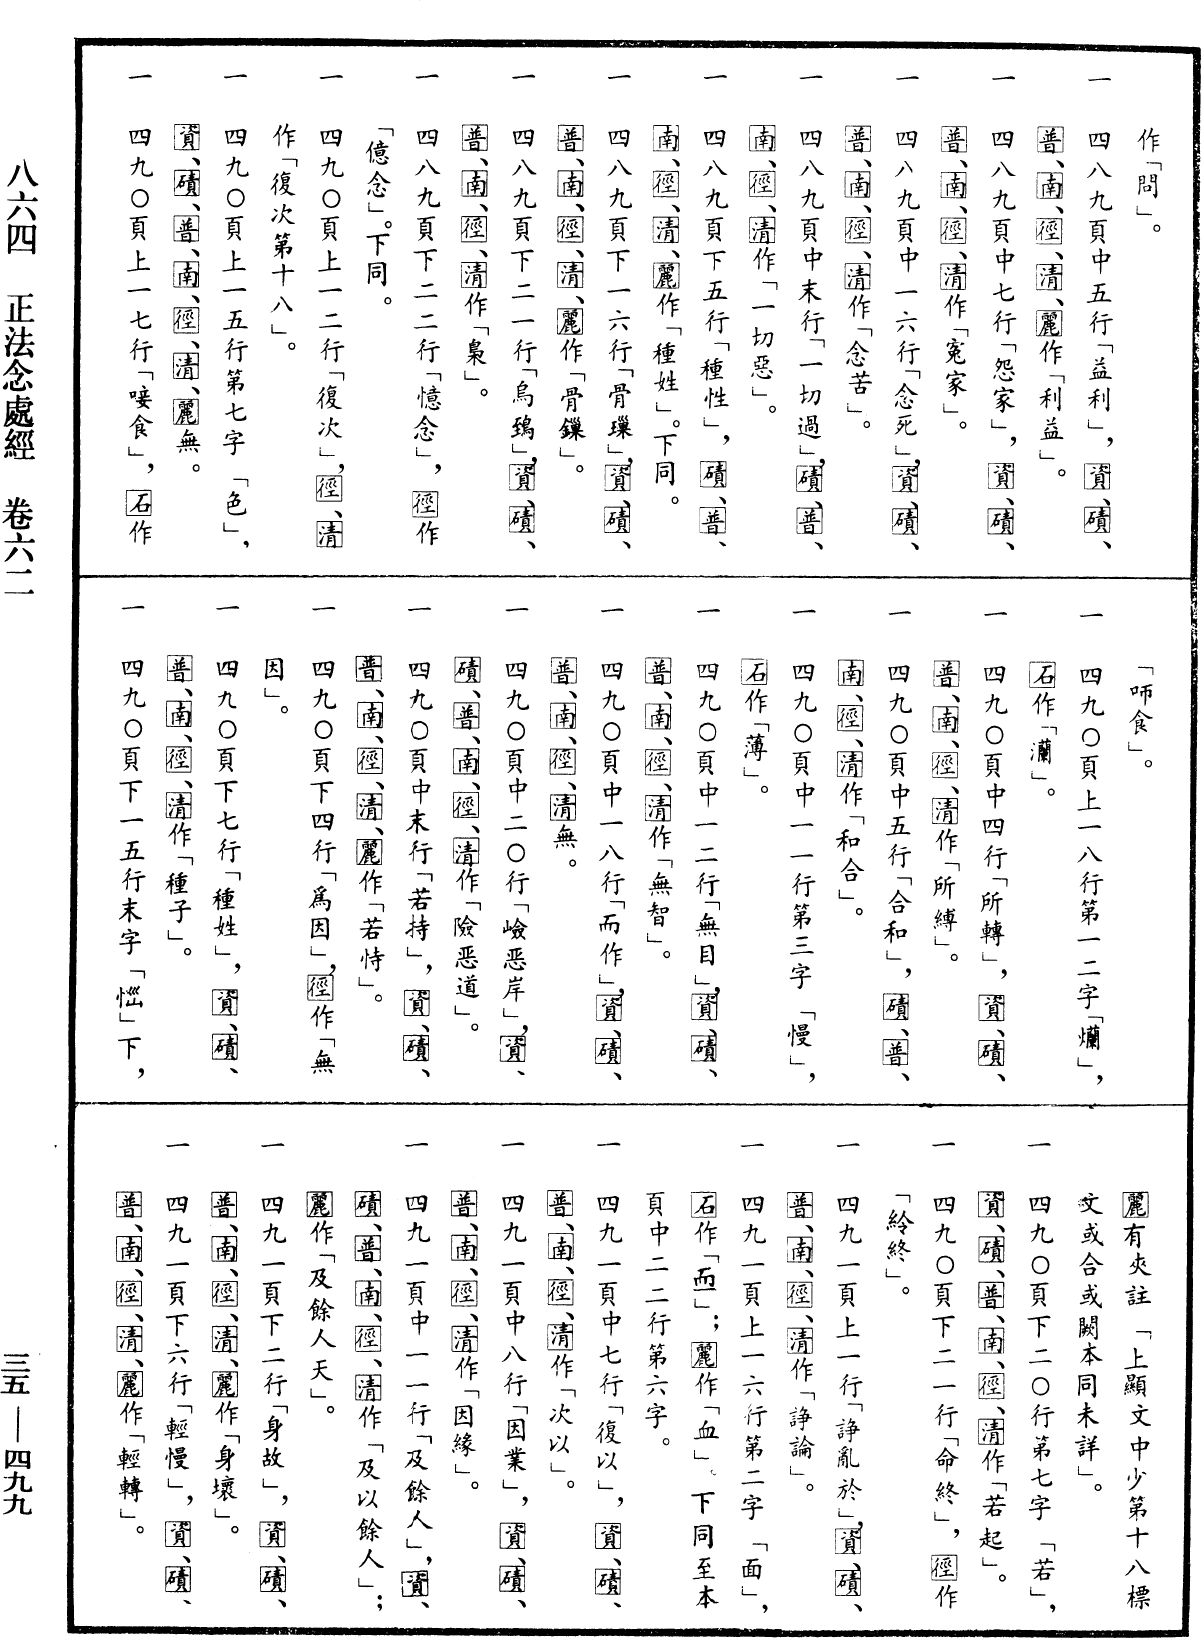 作「問」。
一 四八九頁中五行「益利」，資、磧、
普、南、徑、清、麗作「利益」。
一 四八九頁中七行「怨家」，資、磧、
普、南、徑、清作「寃家」。
一 四八九頁中一六行「念死」，資、磧、
普、南、徑、清作「念苦」。
一 四八九頁中末行「一切過」，磧、普、
南、徑、清作「一切惡」。
一 四八九頁下五行「種性」，磧、普、
南、徑、清、麗作「種姓」。下同。
一 四八九頁下一六行「骨璅」，資、磧、
普、南、徑、清、麗作「骨鏁」。
一 四八九頁下二一行「烏鵄」，資、磧、
普、南、徑、清作「梟」。
一 四八九頁下二二行「憶念」，徑作
「億念」。下同。
一 四九〇頁上一二行「復次」，徑、清
作「復次第十八」。
一 四九〇頁上一五行第七字「色」，
資、磧、普、南、徑、清、麗無。
一 四九〇頁上一七行「唼食」，石作
「咂食」。
一 四九〇頁上一八行第一二字「爛」，
石作「灡」。
一 四九〇頁中四行「所轉」，資、磧、
普、南、徑、清作「所縛」。
一 四九〇頁中五行「合和」，磧、普、
南、徑、清作「和合」。
一 四九〇頁中一一行第三字「慢」，
石作「薄」。
一 四九〇頁中一二行「無目」，資、磧、
普、南、徑、清作「無智」。
一 四九〇頁中一八行「而作」，資、磧、
普、南、徑、清無。
一 四九〇頁中二〇行「嶮惡岸」，資、
磧、普、南、徑、清作「險惡道」。
一 四九〇頁中末行「若持」，資、磧、
普、南、徑、清、麗作「若恃」。
一 四九〇頁下四行「爲因」，徑作「無
因」。
一 四九〇頁下七行「種姓」，資、磧、
普、南、徑、清作「種子」。
一 四九〇頁下一五行末字「惱」下，
麗有夾註「上顯文中少第十八標
文或合或闕本同未詳」。
一 四九〇頁下二〇行第七字「若」，
資、磧、普、南、徑、清作「若起」。
一 四九〇頁下二一行「命終」，徑作
「紟終」。
一 四九一頁上一行「諍亂於」，資、磧、
普、南、徑、清作「諍論」。
一 四九一頁上一六行第二字「面」，
石作「而」；麗作「血」。下同至本
頁中二二行第六字。
一 四九一頁中七行「復以」，資、磧、
普、南、徑、清作「次以」。
一 四九一頁中八行「因業」，資、磧、
普、南、徑、清作「因緣」。
一 四九一頁中一一行「及餘人」，資、
磧、普、南、徑、清作「及以餘人」；
麗作「及餘人天」。
一 四九一頁下二行「身故」，資、磧、
普、南、徑、清、麗作「身壞」。
一 四九一頁下六行「輕慢」，資、磧、
普、南、徑、清、麗作「輕轉」。
八六四 正法念處經 卷六二
三五—四九九